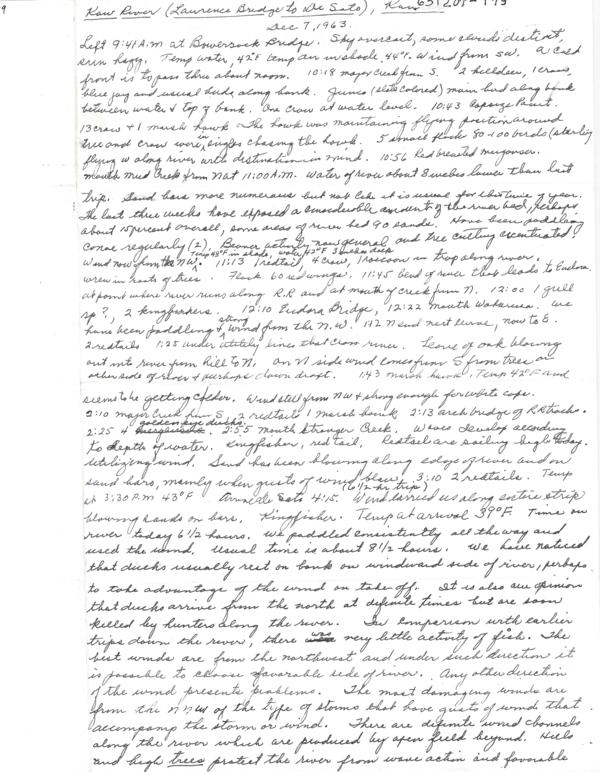 Kaw River (Lawrence Bridge to De Soto), Kans
Dec 7, 1963.
Left 9:41 A.M at Bowersock Bridge. Sky overcast, some clouds distinct,
sun hazy. Temp water, 42°F temp air in shade, 44°F. Wind from SW. A cold
front is to pass thru about noon. 10:18 major creek from S. 2 killdeer, 1 crow,
blue jay and usual birds along bank. Junco (slate colored) main bird along bank
between water & top of bank. One crow at water level. 10:43
13 crow & 1 marsh hawk. The hawk was maintaining flying position around
tree and crow were in singles chasing the hawk. 5 small flock 50-100 birds (starling)
flying W along river with destination in mind. 10:56 Red breasted merganser.
mouth Mud Creek from N at 11:00 A.M. Water of river about 8 inches lower than last
trip. Sand bars more numerous but not like it is usual for this time of year.
The last three weeks have exposed a considerable amount of the river bed, perhaps
about 15 percent overall, some areas of river bed 90 sands. Have been paddling
canoe regularly (2). Beaver activity now general and tree cutting
Wind now from the NW. Temp 48°F in shade, water 43°F 3 inches deep
11:13 1 redtail, 4 crow, 1 raccoon in trap along river,
wren in roots of trees. Flock 60 redwings. 11:45 bend of river that leads to Eudora.
at point where river runs along R.R and at mouth of creek from N. 12:00 1 gull
sp?, 2 kingfishers. 12:10 Eudora Bridge, 12:22 mouth Wakarusa. We
have been paddling & strong wind from the N.W. 1:12 N end next curve, now to E.
2 redtails 1:25 under utility lines that cross river. Leave of oak blowing
out into river from hill to N. On N side wind comes from S from trees on
other side of river & perhaps down draft. 1:43 marsh hawk, Temp 42°F and
seems to be getting colder. Wind still from NW & strong enough for white caps.
2:10 major creek from S, 2 redtails 1 marsh hawk 2:13 arch bridge of R.R tracks.
2:25 4 goldeneye ducks. 2:35 mouth Stranger Creek. Waves develop according
to depth of water. Kingfisher, red tail. Redtail are sailing high today.
utilizing wind. Sand has been blowing along edge of river and on
sand bars, mainly when gusts of wind blew. 3:10 2 redtails. Temp
at 3:30 P.M 43°F Arrive De Soto 4:15. (6 1/2 hr trip) Wind carried us along entire strip
blowing sands on bars. Kingfisher. Temp at arrival 39°F. Time on
river today 6 1/2 hours. We paddled consistently all the way and
used the wind. Usual time is about 8 1/2 hours. We have noticed
that ducks usually rest on bank on windward side of river, perhaps
to take advantage of the wind on take off. It is also our opinion
that ducks arrive from the north at definite times but are soon
killed by hunters along the river. In comparison with earlier
trips down the river, there was very little activity of fish. The
best winds are from the northwest and under such direction it
is possible to choose favorable side of river. Any other direction
of the wind presents problems. The most damaging winds are
from the NNW of the type of storms that have gusts of wind that
accompany the storm or wind. There are definite wind channels
along the river which are produced by open field beyond. Hills
and high trees protect the river from wave action and favorable